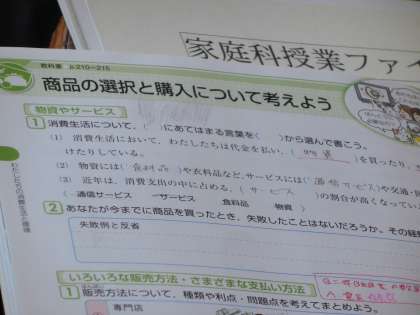 家庭科授業ファイ
教科書 p.210~215
商品の選択と購入について考えよう
物資やサービス
1 消費生活について,( )にあてはまる言葉を〈 〉から選んで書こう。
(1) 消費生活において,わたしたちは代金を払い,( 物資 )を買ったり,
けたりしている。
(2) 物資には( 食料品 )や衣料品など,サービスには( 通信サービス )や交通・
(3) 近年は,消費支出の中に占める,( サービス )の割合が高くなってい
〈 通信サービス サービス 食料品 物資 〉
2 あなたが今までに商品を買ったとき,失敗したことはないだろうか。その経
失敗例と反省
いろいろな販売方法・さまざまな支払い方法
1 販売方法について,種類や利点・問題点を考えてまとめよう。
専門店
わたしたちの消費生活と環境